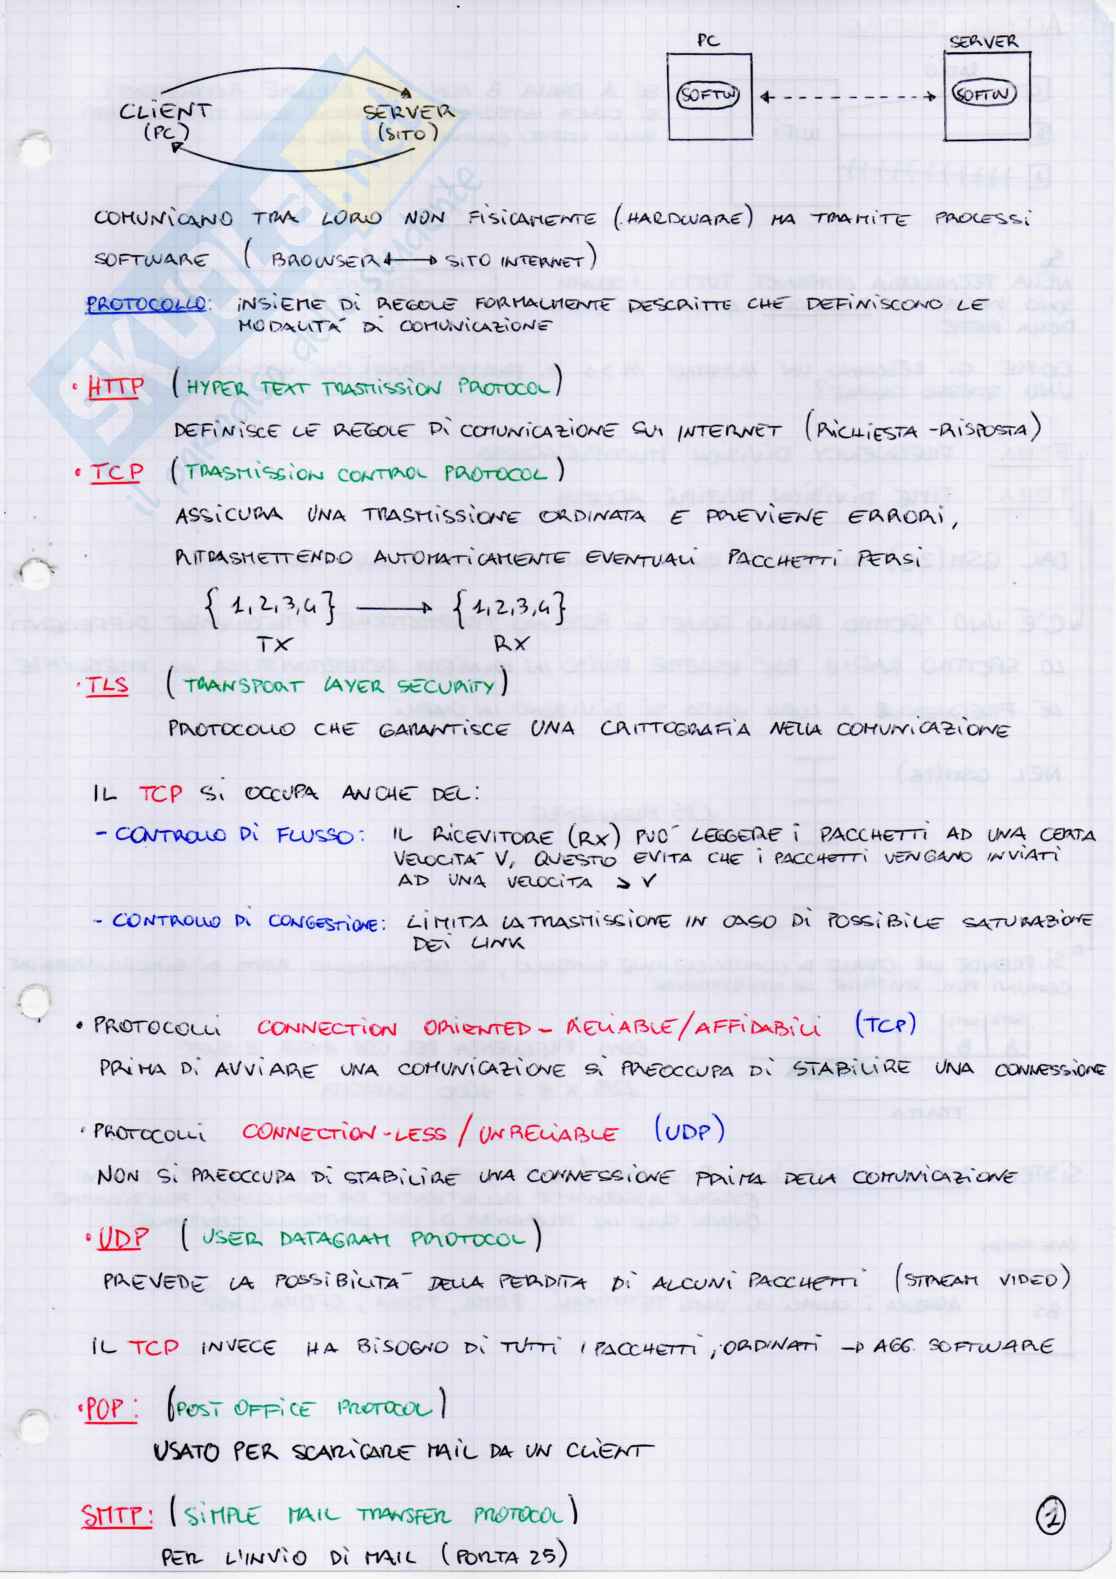 PC
SERVER
SOFTW
SOFTW
CLIENT
(PC)
SERVER
(SITO)
COMUNICANO TRA LORO NON FISICAMENTE (HARDWARE) MA TRAMITE PROCESSI
SOFTWARE ( BROWSER ←→ SITO INTERNET)
PROTOCOLLO: INSIEME DI REGOLE FORMALMENTE DESCRITTE CHE DEFINISCONO LE
MODALITA' DI COMUNICAZIONE
• HTTP (HYPER TEXT TRASMISSION PROTOCOL)
DEFINISCE LE REGOLE DI COMUNICAZIONE SUI INTERNET (RICHIESTA-RISPOSTA)
• TCP (TRASMISSION CONTROL PROTOCOL)
ASSICURA UNA TRASMISSIONE ORDINATA E PREVIENE ERRORI,
RITRASMETTENDO AUTOMATICAMENTE EVENTUALI PACCHETTI PERSI
{ 1,2,3,4 } → { 1,2,3,4 }
TX RX
• TLS (TRANSPORT LAYER SECURITY)
PROTOCOLLO CHE GARANTISCE UNA CRITTOGRAFIA NELLA COMUNICAZIONE
IL TCP SI OCCUPA ANCHE DEL:
- CONTROLLO DI FLUSSO: IL RICEVITORE (RX) PUO' LEGGERE I PACCHETTI AD UNA CERTA
VELOCITA' V, QUESTO EVITA CHE I PACCHETTI VENGANO INVIATI
AD UNA VELOCITA > V
- CONTROLLO DI CONGESTIONE: LIMITA LA TRASMISSIONE IN CASO DI POSSIBILE SATURAZIONE
DEI LINK
• PROTOCOLLI CONNECTION ORIENTED - RELIABLE/AFFIDABILI (TCP)
PRIMA DI AVVIARE UNA COMUNICAZIONE SI PREOCCUPA DI STABILIRE UNA CONNESSIONE
• PROTOCOLLI CONNECTION-LESS / UNRELIABLE (UDP)
NON SI PREOCCUPA DI STABILIRE UNA CONNESSIONE PRIMA DELLA COMUNICAZIONE
• UDP ( USER DATAGRAM PROTOCOL)
PREVEDE LA POSSIBILITA' DELLA PERDITA DI ALCUNI PACCHETTI (STREAM VIDEO)
IL TCP INVECE HA BISOGNO DI TUTTI I PACCHETTI, ORDINATI → AGG. SOFTWARE
• POP: (POST OFFICE PROTOCOL)
USATO PER SCARICARE MAIL DA UN CLIENT
SMTP: (SIMPLE MAIL TRANSFER PROTOCOL)
PER L'INVIO DI MAIL (PORTA 25)
1
SKUOLA.net